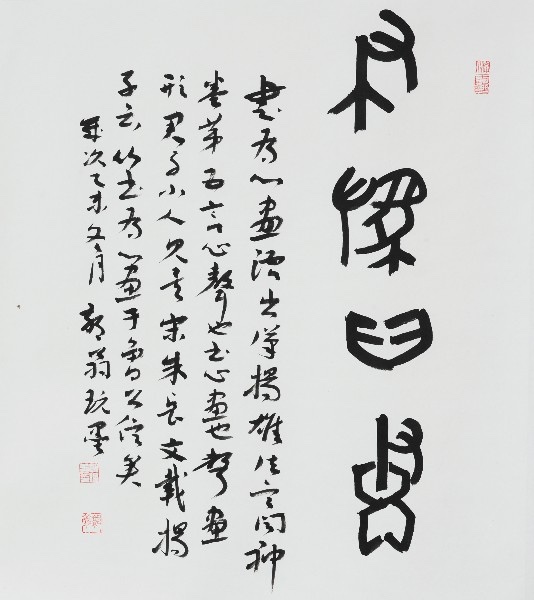 書為心畫語出漢揚雄法言問神
卷第五言心聲也書心畫也聲畫
形君子小人見矣宋朱長文載揚
子云以書為心畫于魯公信矣
歲次乙未冬月翁玩墨